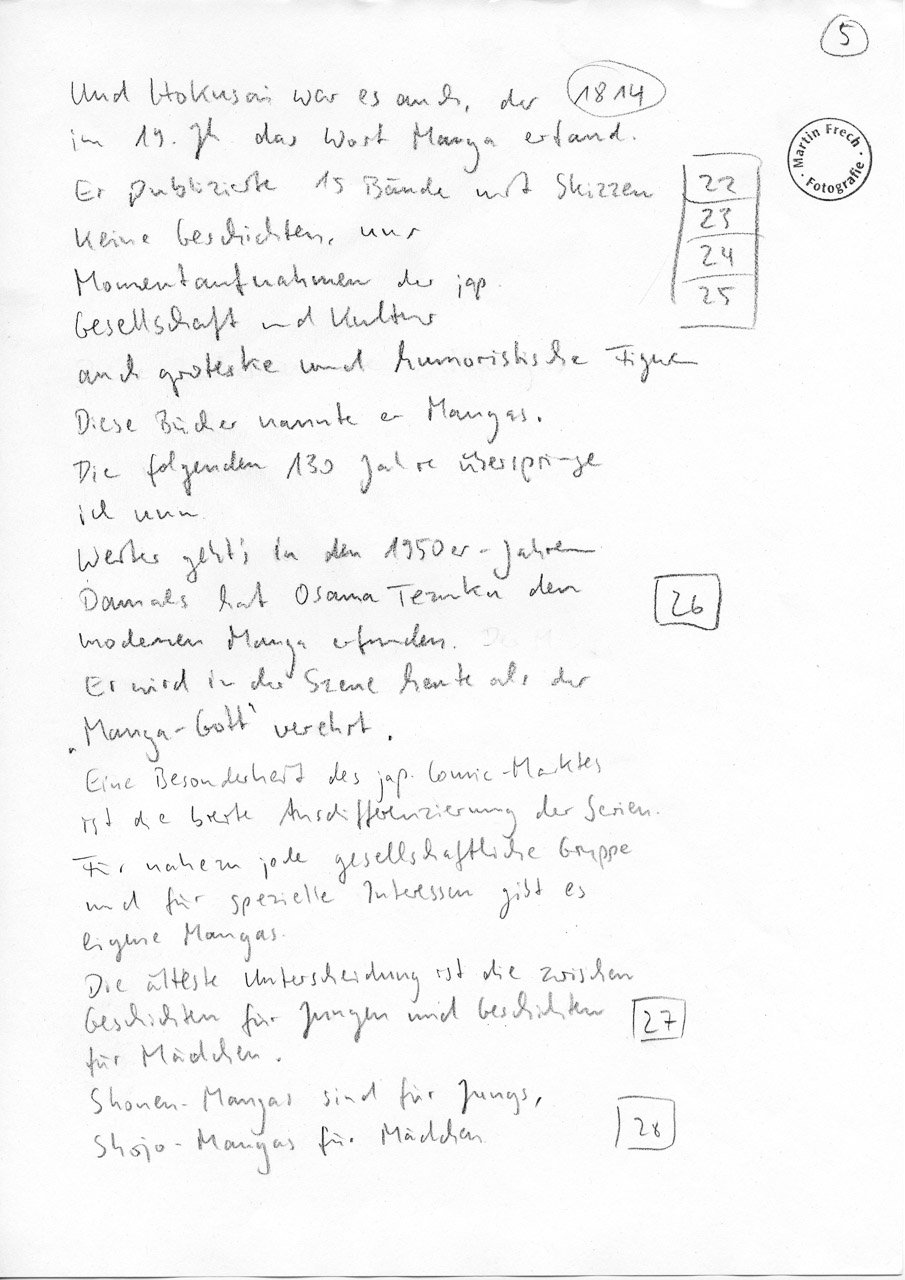 5
Und Hokusai war es auch, der 1814
im 19. Jh das Wort Manga erfand.
Martin Frech · Fotografie ·
Er publizierte 15 Bände mit Skizzen 22
Keine Geschichten, nur 23
Momentaufnahmen der jap. 24
25
Gesellschaft und Kultur
auch groteske und humoristische Figuren
Diese Bücher nannte er Mangas.
Die folgenden 130 Jahre überspringe
ich nun
Weiter geht's in den 1950er-Jahren
Damals hat Osamu Tezuka den 26
modernen Manga erfunden.
Er wird in der Szene heute als der
„Manga-Gott" verehrt.
Eine Besonderheit des jap. Comic-Marktes
ist die breite Ausdifferenzierung der Serien.
Für nahezu jede gesellschaftliche Gruppe
und für spezielle Interessen gibt es
eigene Mangas.
Die älteste Unterscheidung ist die zwischen
Geschichten für Jungen und Geschichten 27
für Mädchen.
Shonen-Mangas sind für Jungs,
Shojo-Mangas für Mädchen 28